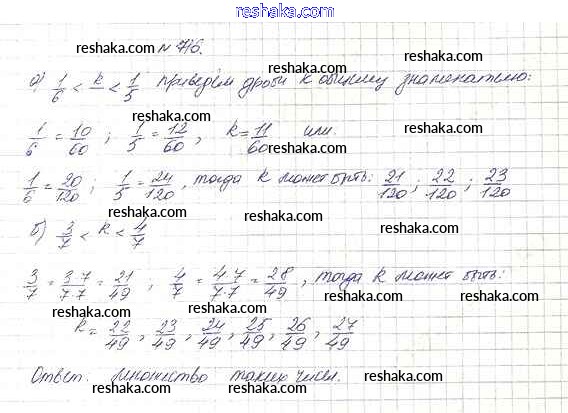 www.reshaka.com
reshaka.com
№ 716.
reshaka.com reshaka.com
а) 1/6 < k < 1/5 приведём дроби к общему знаменателю:
reshaka.com
1/6 = 10/60 ; 1/5 = 12/60 , k = 11/60 или
reshaka.com reshaka.com
1/6 = 20/120 ; 1/5 = 24/120 , тогда k может быть: 21/120 ; 22/120 ; 23/120
reshaka.com reshaka.com
б) 3/7 < k < 4/7
reshaka.com reshaka.com
3/7 = 3·7/7·7 = 21/49 ; 4/7 = 4·7/7·7 = 28/49 , тогда k может быть:
reshaka.com reshaka.com
k = 22/49 , 23/49 , 24/49 , 25/49 , 26/49 , 27/49
reshaka.com
Ответ. множество таких чисел.
reshaka.com reshaka.com
reshaka.com